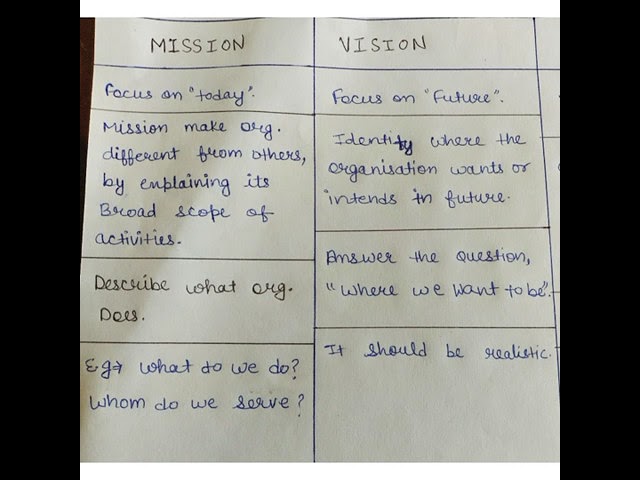 MISSION
Focus on "today".
Mission make org.
different from others,
by explaining its
Broad scope of
activities.
Describe what org.
Does.
Eg→ what do we do?
Whom do we serve?
VISION
Focus on "Future".
Identify where the
organisation wants or
intends in future.
Answer the question,
"where we want to be".
It should be realistic.